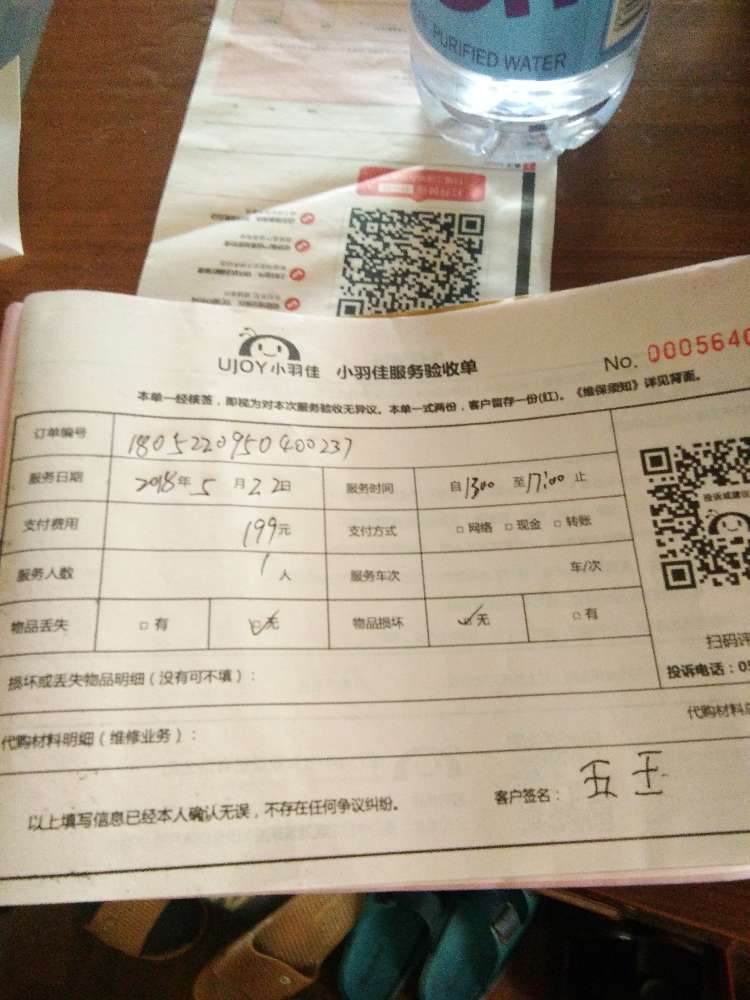 PURIFIED WATER
UJOY小羽佳 小羽佳服务验收单 No. 0005640
本单一经核签，即视为对本次服务验收无异议。本单一式两份，客户留存一份(红)。《维保须知》详见背面。
订单编号 180522095040023​7
服务日期 2018年5月22日 服务时间 自13:00至17:00止
支付费用 199元 支付方式 □网络 □现金 □转账
服务人数 1人 服务车次 车/次
投诉或建议
物品丢失 □有 ☑无 物品损坏 ☑无 □有
扫码评
损坏或丢失物品明细（没有可不填）：
投诉电话：05
代购材料明细（维修业务）： 代购材料总
以上填写信息已经本人确认无误，不存在任何争议纠纷。 客户签名：